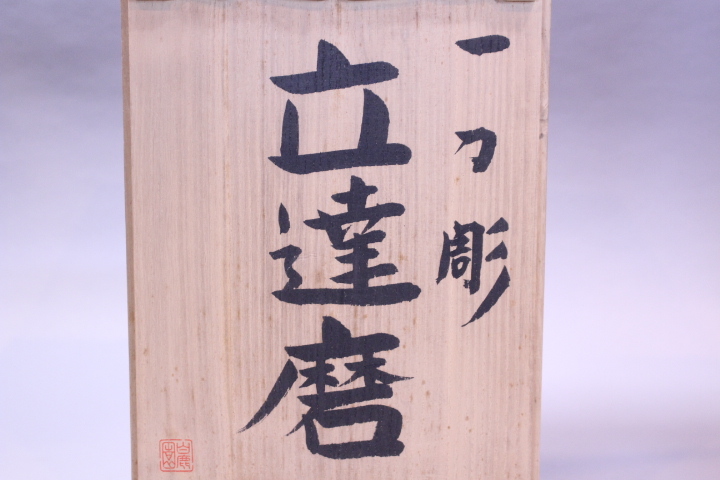 一刀彫
立達磨